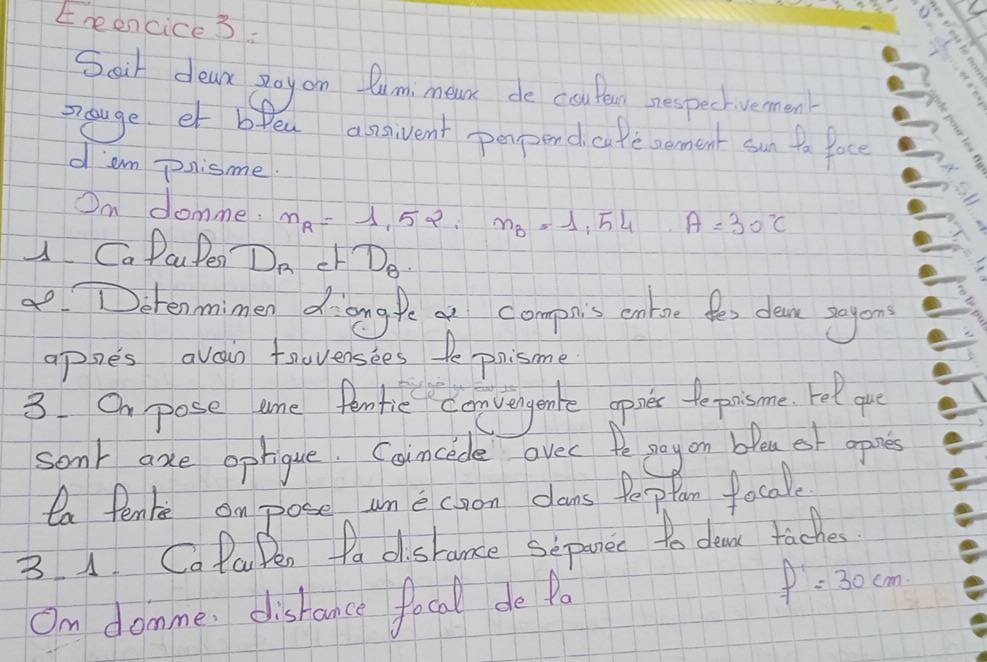 Exercice 3:
Soit deux rayon lumineux de couleur respectivement
rouge. et bleu arrivent perpendiculèrement sur la face
d'un prisme.
On donne. nR = 1,52. nB = 1,54. A = 30°C
1_ Calculer DR et DB.
2_ Déterminer l'angle α compris entre les deux rayons
aprés avoir traversées le prisme.
3_ On pose une lentie convergente aprés le prisme. tel que
sont axe optique. Coincéde avec le rayon bleu et aprés
la lentie on pose un écron dans le plan focale.
3_1. Calculer la distance séparée to deux tâches.
On donne. distance focal de la f' = 30 cm.